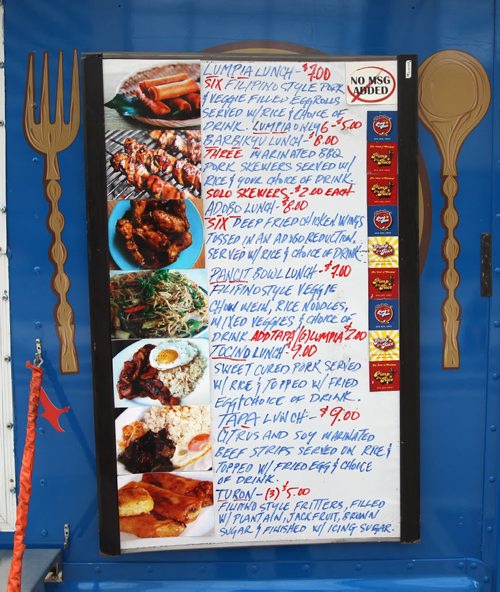 LUMPIA LUNCH - $7.00
SIX FILIPINO STYLE PORK
& VEGGIE FILLED EGGROLLS
SERVED W/ RICE & CHOICE OF
DRINK. LUMPIA ONLY 6 - $5.00
BARBIKYU LUNCH - $8.00
THREE MARINATED BBQ
PORK SKEWERS SERVED W/
RICE & YOUR CHOICE OF DRINK.
SOLO SKEWERS - $2.00 EACH
ADOBO LUNCH - $8.00
SIX DEEP FRIED CHICKEN WINGS
TOSSED IN AN ADOBO REDUCTION,
SERVED W/ RICE & CHOICE OF DRINK
PANCIT BOWL LUNCH - $7.00
FILIPINO STYLE VEGGIE
CHOW MEIN, RICE NOODLES,
MIXED VEGGIES & CHOICE OF
DRINK ADD TAPA/(2) LUMPIA $2.00
TOCINO LUNCH - $9.00
SWEET CURED PORK SERVED
W/ RICE & TOPPED W/ FRIED
EGG & CHOICE OF DRINK.
TAPA LUNCH - $9.00
CITRUS AND SOY MARINATED
BEEF STRIPS SERVED ON RICE &
TOPPED W/ FRIED EGG & CHOICE
OF DRINK.
TURON - (3) $5.00
FILIPINO STYLE FRITTERS, FILLED
W/ PLANTAIN, JACKFRUIT, BROWN
SUGAR & FINISHED W/ ICING SUGAR.
NO MSG
ADDED